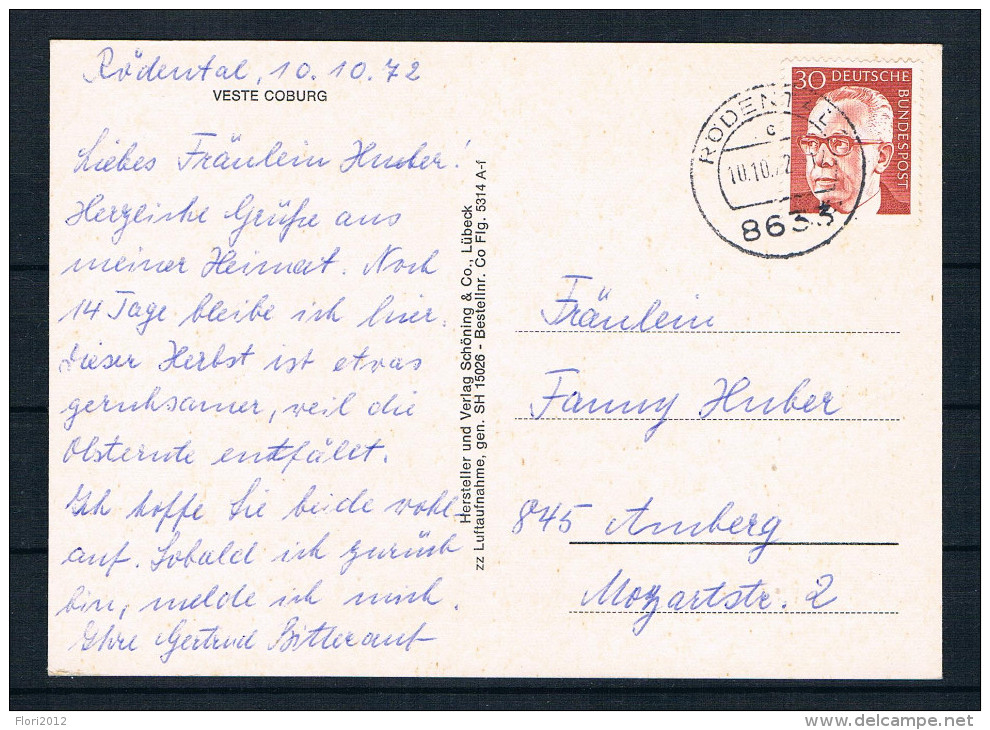 Rödental, 10.10.72
VESTE COBURG
Liebes Fräulein Huber!
Herzliche Grüße aus
meiner Heimat. Noch
14 Tage bleibe ich hier.
Dieser Herbst ist etwas
geruhsamer, weil die
Obsternte entfält.
Ich hoffe Sie beide wohl-
auf. Sobald ich zurück
bin, melde ich mich.
Ihre Gertrud Bitterauf
Hersteller und Verlag Schöning & Co., Lübeck
zz Luftaufnahme, gen. SH 15026 - Bestellnr. Co Flg. 5314 A-f
30 DEUTSCHE BUNDESPOST
c
10.10.72
8633
Fräulein
Fanny Huber
845 Amberg
Mozartstr. 2
Flori2012
© delcampe.net